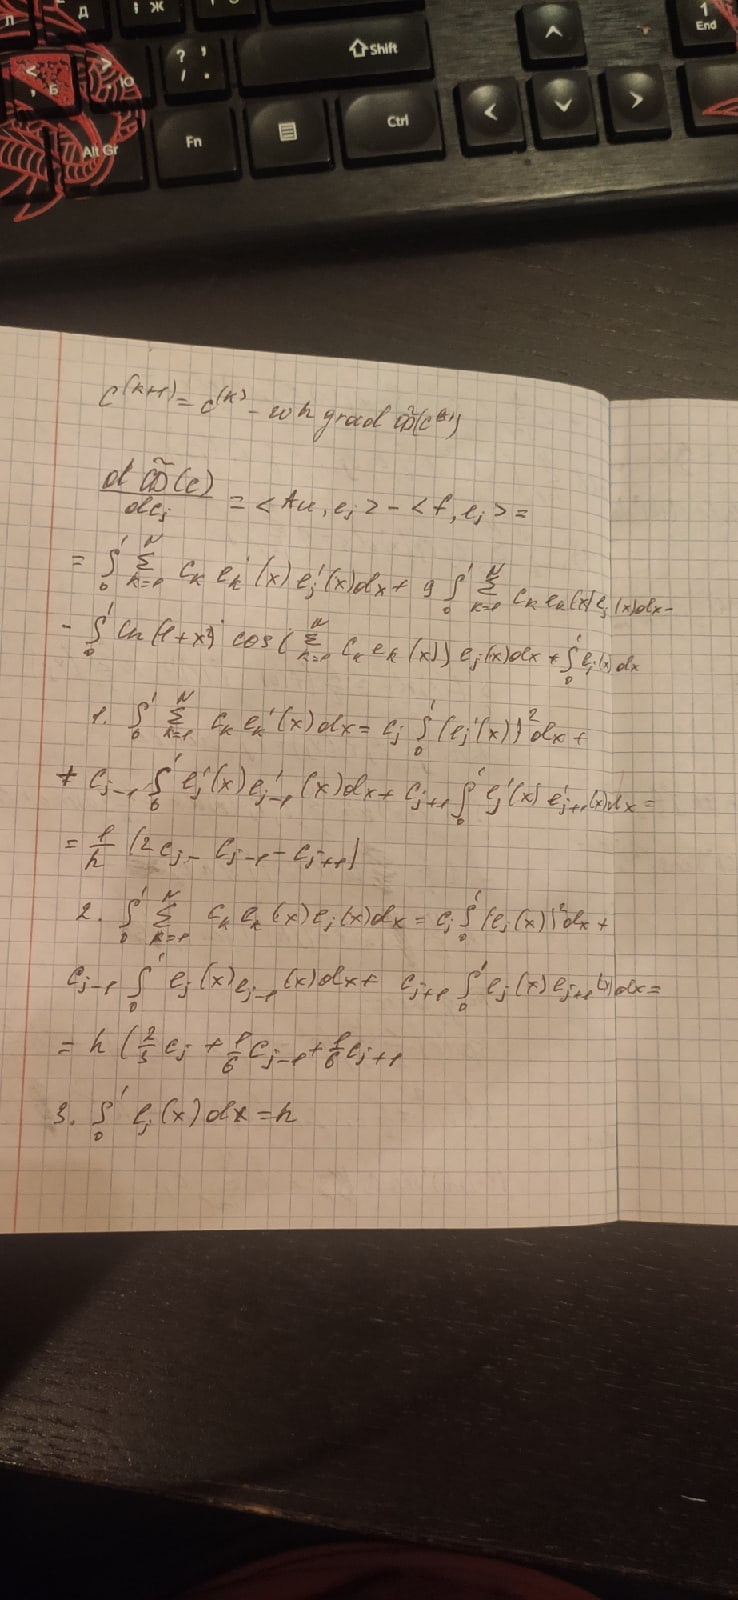 Д ! Ж
? ' / . ⇧Shift 1 End
< , Б Ю
Alt Gr Fn Ctrl
c^(k+1) = c^(k) - wh grad Φ̃(c^(k))
dΦ̃(c)/dc_j = <Au, e_j> - <f, e_j> =
= ∫₀¹ Σ_{k=1}^N c_k e_k'(x) e_j'(x)dx + 9 ∫₀¹ Σ_{k=1}^N c_k e_k(x) e_j(x)dx -
- ∫₀¹ ln(1+x²) cos(Σ_{k=1}^N c_k e_k(x)) e_j(x)dx + ∫₀¹ e_j(x)dx
1. ∫₀¹ Σ_{k=1}^N c_k e_k'(x)dx = c_j ∫₀¹ (e_j'(x))² dx +
+ c_{j-1} ∫₀¹ e_j'(x) e_{j-1}'(x)dx + c_{j+1} ∫₀¹ e_j'(x) e_{j+1}'(x)dx =
= 1/h (2c_j - c_{j-1} - c_{j+1})
2. ∫₀¹ Σ_{k=1}^N c_k e_k(x) e_j(x)dx = c_j ∫₀¹ (e_j(x))² dx +
c_{j-1} ∫₀¹ e_j(x) e_{j-1}(x)dx + c_{j+1} ∫₀¹ e_j(x) e_{j+1}(x)dx =
= h (2/3 c_j + 1/6 c_{j-1} + 1/6 c_{j+1}
3. ∫₀¹ e_j(x)dx = h